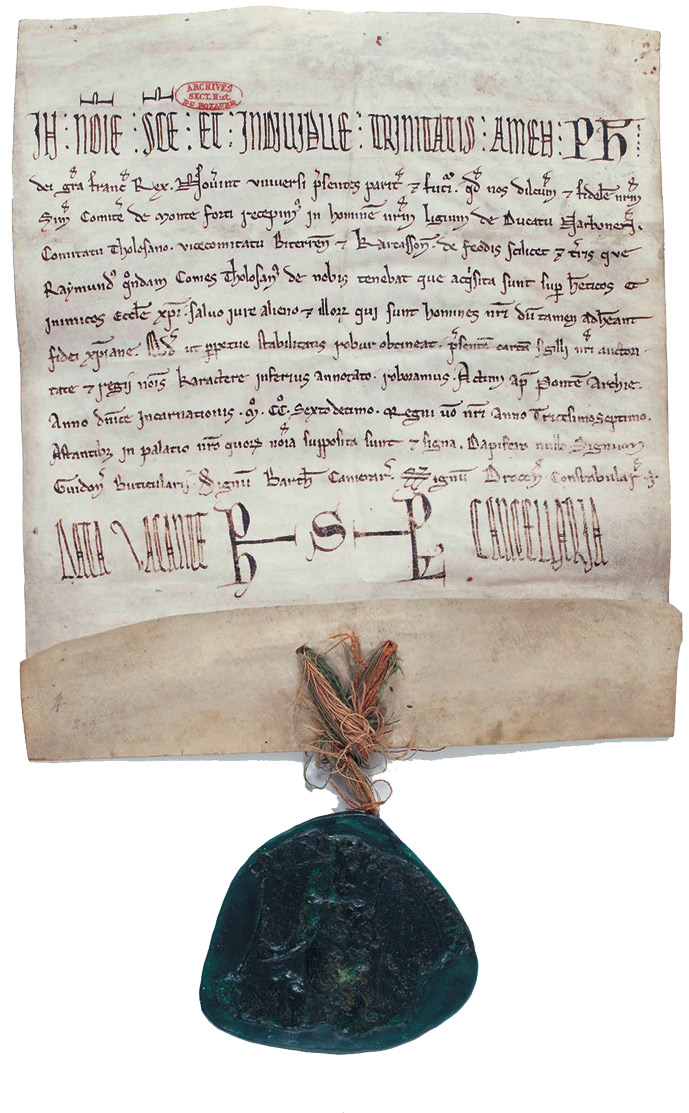 ARCHIVES
SECT. HIST.
DU ROYAUME
IN : NOIE : SCE : ET : INDIVIDUE : TRINITATIS : AMEN : PH
dei gra franc Rex. Noverint universi psentes parit et futi. qd nos dilctm et fidele nrm
Sim Comite de Monte forti recepim in homine nrm ligium de Ducatu Narbonen.
Comitatu Tholosano. vicecomitatu Biterren et Karcasson. de feodis scilicet et tris que
Raymund qndam Comes Tholosan de nobis tenebat que acqsita sunt sup heticos et
inimicos Eccle xpi. salvo iure alieno et illorum qui sunt homines nri du tamen adheant
fidei xpiane. Qd ut ppetue stabilitatis robur obtineat. psente carta sigilli nri auctori-
tate et regii nois karactere inferius annotato. roboramus. Actum ap Ponte Archie.
Anno dnice Incarnationis. M. CC. Sextodecimo. Regni vo nri Anno Tricesimoseptimo.
Astantibus in palatio nro quorum noia supposita sunt et signa. Dapifero nullo. Signum
Guidon Buticularii. Signu Barth Camerar. Signu Drocon Constabular.
DATA VACANTE PH S PL CANCELLARIA